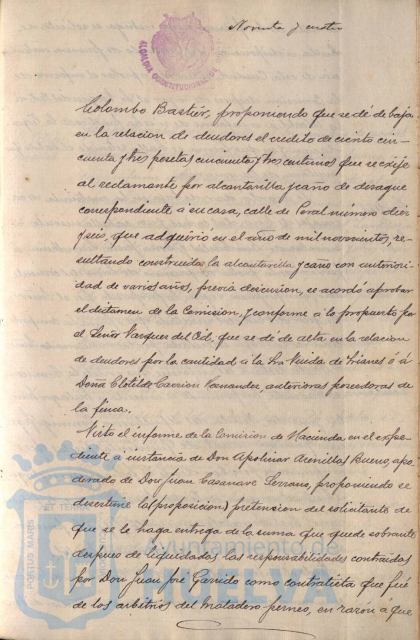 Noventa y cuatro
ALCALDIA CONSTITUCIONAL DE
Colombo Bastier, proponiendo que se dé de baja
en la relacion de deudores el credito de ciento cin-
cuenta y tres pesetas cincuenta y tres centimos que se exije
al reclamante por alcantarilla y caño de desague
correspondiente á su casa, calle de Peral número diez
y seis, que adquirió en el año de mil novecientos, re-
sultando construidos la alcantarilla y caño con anteriori-
dad de varios años, previa discusion, se acordó aprobar
el dictamen de la Comision, y conforme á lo propuesto por
el Señor Vazquez del Cid, que se dé de alta en la relacion
de deudores por la cantidad á la Sra Viuda de Trianes ó á
Doña Clotilde Carrion Fernandez, anteriores poseedoras de
la finca.
Visto el informe de la Comision de Hacienda en el espe-
diente á instancia de Don Apolinar Arenillas Bueno, apo-
derado de Don Juan Casanave Serrano, proponiendo se
desestime la (proposicion) pretension del solicitante de
que se le haga entrega de la suma que quede sobrante
despues de liquidadas las responsabilidades contraidas
por Don Juan José Garrido como contratista que fué
de los arbitrios del matadero-perneo, en razon á que
PORTUS MARIS
Ayuntamiento de
HUELVA